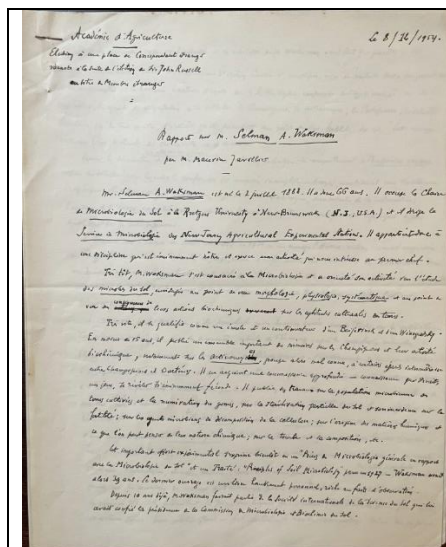 Académie d'Agriculture
Le 8/12/1954.
Election à une place de Correspondant étranger
vacante à la suite de l'élection de Sir John Russell
au titre de Membre étranger
Rapport sur M. Selman A. Waksman
par M. Maurice Javillier
Mr. Selman A. Waksman est né le 2 juillet 1888. Il a donc 66 ans. Il occupe la Chaire
de Microbiologie du Sol à la Rutgers University à New-Brunswick (N.J., U.S.A.) et il dirige le
Service de microbiologie des New Jersey Agricultural Experimental Stations. Il appartient donc à
une discipline qui est éminemment nôtre et exerce une activité qui nous intéresse au premier chef.
Très tôt, M. Waksman s'est consacré à la Microbiologie et a orienté son activité vers l'étude
des microbes du sol, envisagés au point de vue morphologie, physiologie, systématique et au point de
vue de leurs actions biochimiques sur les aptitudes culturales des terres.
Très vite, il se qualifie comme un émule et un continuateur d'un Beijerinck et d'un Winogradsky.
En moins de 10 ans, il publie un ensemble important de mémoires sur les Champignons et leur activité
biochimique, notamment sur les actinomycètes, groupe alors mal connu, à certains égards intermédiaire
entre Champignons et Bactéries. Il en acquiert une connaissance approfondie et connaissance qui devait,
un jour, se révéler éminemment féconde. Il publie des travaux sur la population microbienne des
sols cultivés et la numération des germes, sur la stérilisation partielle du sol et son retentissement sur la
fertilité; sur les agents microbiens de décomposition de la cellulose; sur l'origine des matières humiques et
ce que l'on peut penser de leur nature chimique; sur la tourbe et les composts, etc.
Cet important effort expérimental s'exprime bientôt en un Précis de Microbiologie générale en rapport
avec la Microbiologie du sol et un Traité: "Principles of Soil Microbiology" paru en 1927 — Waksman avait
alors 39 ans. Ce dernier ouvrage est une œuvre hautement personnelle, riche en faits et observations.
Depuis 10 ans déjà, M. Waksman faisait partie de la Société internationale de la Science du sol qui lui
avait confié la présidence de la Commission de Microbiologie et Biochimie du sol.